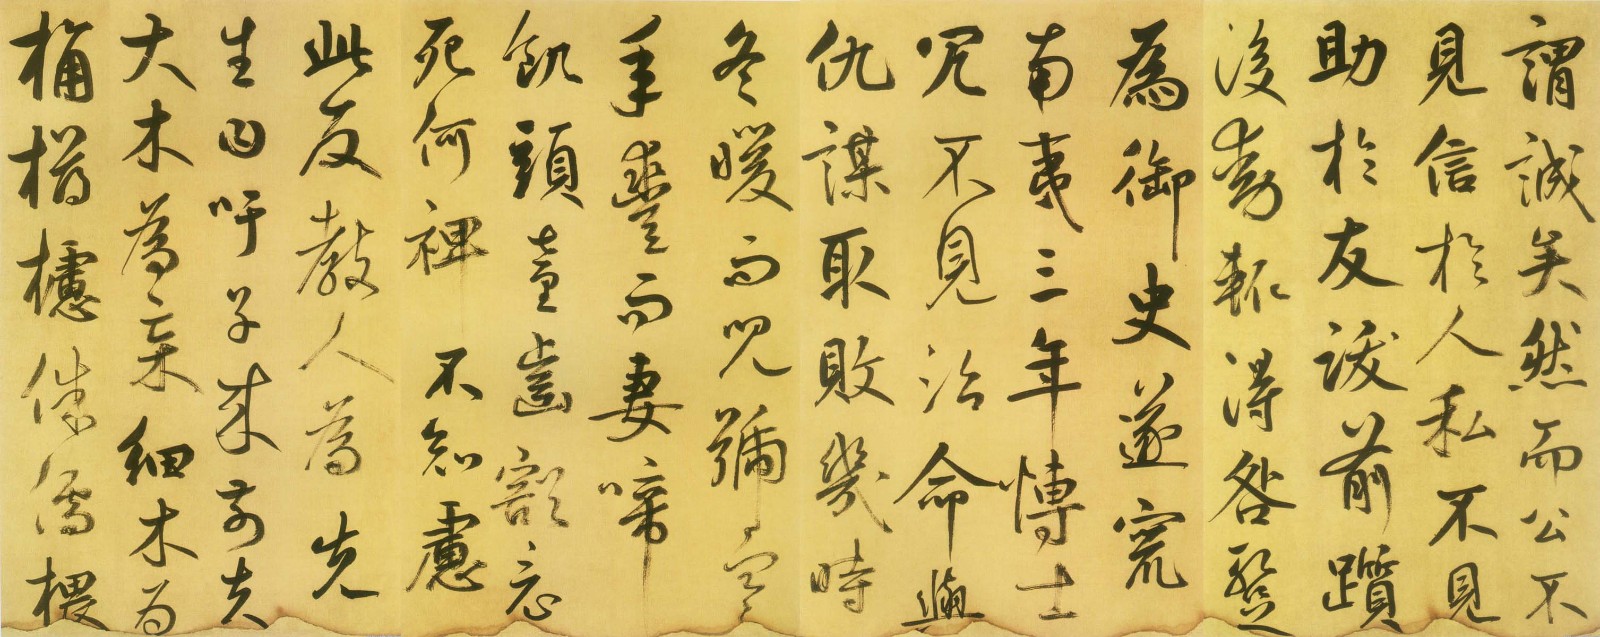 謂誠矣然而公不
見信於人私不見
助於友跋前躓
後動輒得咎暫
為御史遂竄
南夷三年博士
冗不見治命與
仇謀取敗幾時
冬暖而兒號寒
年豐而妻啼
飢頭童齒豁竟
死何裨不知慮
此反教人為先
生曰吁子來前夫
大木為杗細木為
桷欂櫨侏儒椳